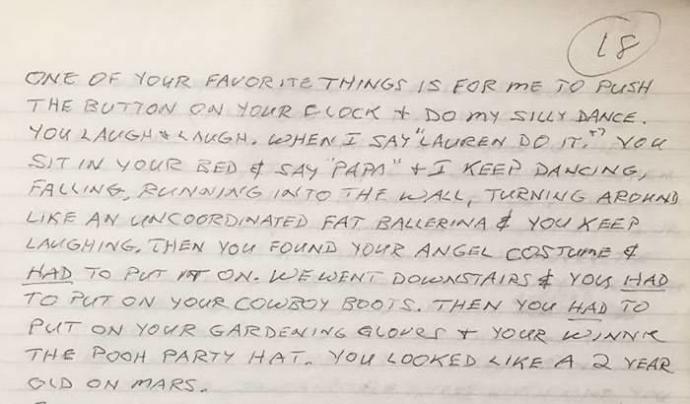 18
ONE OF YOUR FAVORITE THINGS IS FOR ME TO PUSH
THE BUTTON ON YOUR CLOCK & DO MY SILLY DANCE.
YOU LAUGH & LAUGH. WHEN I SAY "LAUREN DO IT." YOU
SIT IN YOUR BED & SAY "PAPA" & I KEEP DANCING,
FALLING, RUNNING INTO THE WALL, TURNING AROUND
LIKE AN UNCOORDINATED FAT BALLERINA & YOU KEEP
LAUGHING. THEN YOU FOUND YOUR ANGEL COSTUME &
HAD TO PUT IT ON. WE WENT DOWNSTAIRS & YOU HAD
TO PUT ON YOUR COWBOY BOOTS. THEN YOU HAD TO
PUT ON YOUR GARDENING GLOVES & YOUR WINNIE
THE POOH PARTY HAT. YOU LOOKED LIKE A 2 YEAR
OLD ON MARS.